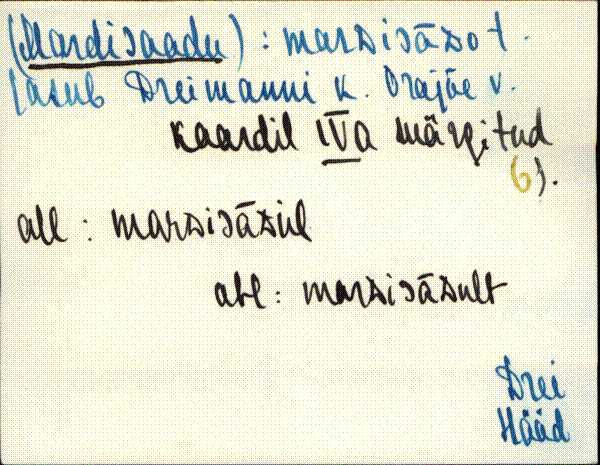 (Mardisaadu) : marsisāsot.
Lasub Dreimanni k. Orajõe v.
Kaardil IVa märgitud
6).
all : marsisāsül
abl : marsisāsult
Drei
Hääd